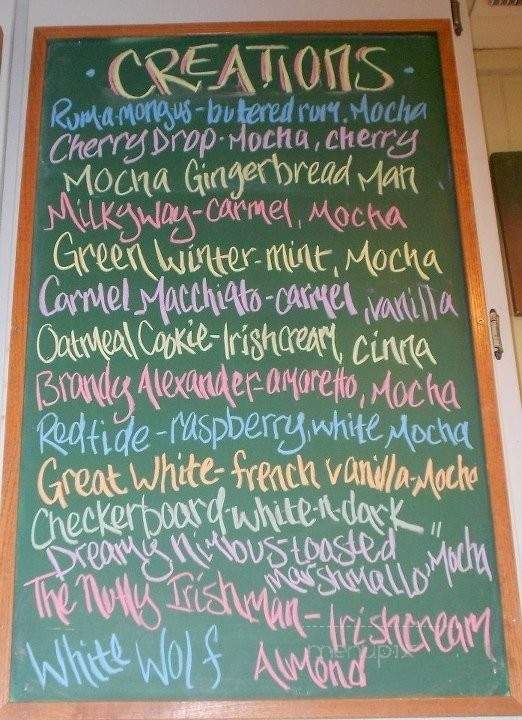 CREATIONS
Rum-a-mongus-buttered rum, Mocha
Cherry Drop-Mocha, cherry
Mocha Gingerbread Man
Milkyway-carmel, Mocha
Green Winter-mint, Mocha
Carmel Macchiato-carmel, vanilla
Oatmeal Cookie-Irishcream, cinna
Brandy Alexander-amaretto, Mocha
Redtide-raspberry, white Mocha
Great White-french vanilla-Mocha
Checkerboard-white-n-dark "
Dreamy nimbous-toasted
marshmallo, Mocha
The Nutty Irishman-Irishcream
Almond
White Wolf
menupix